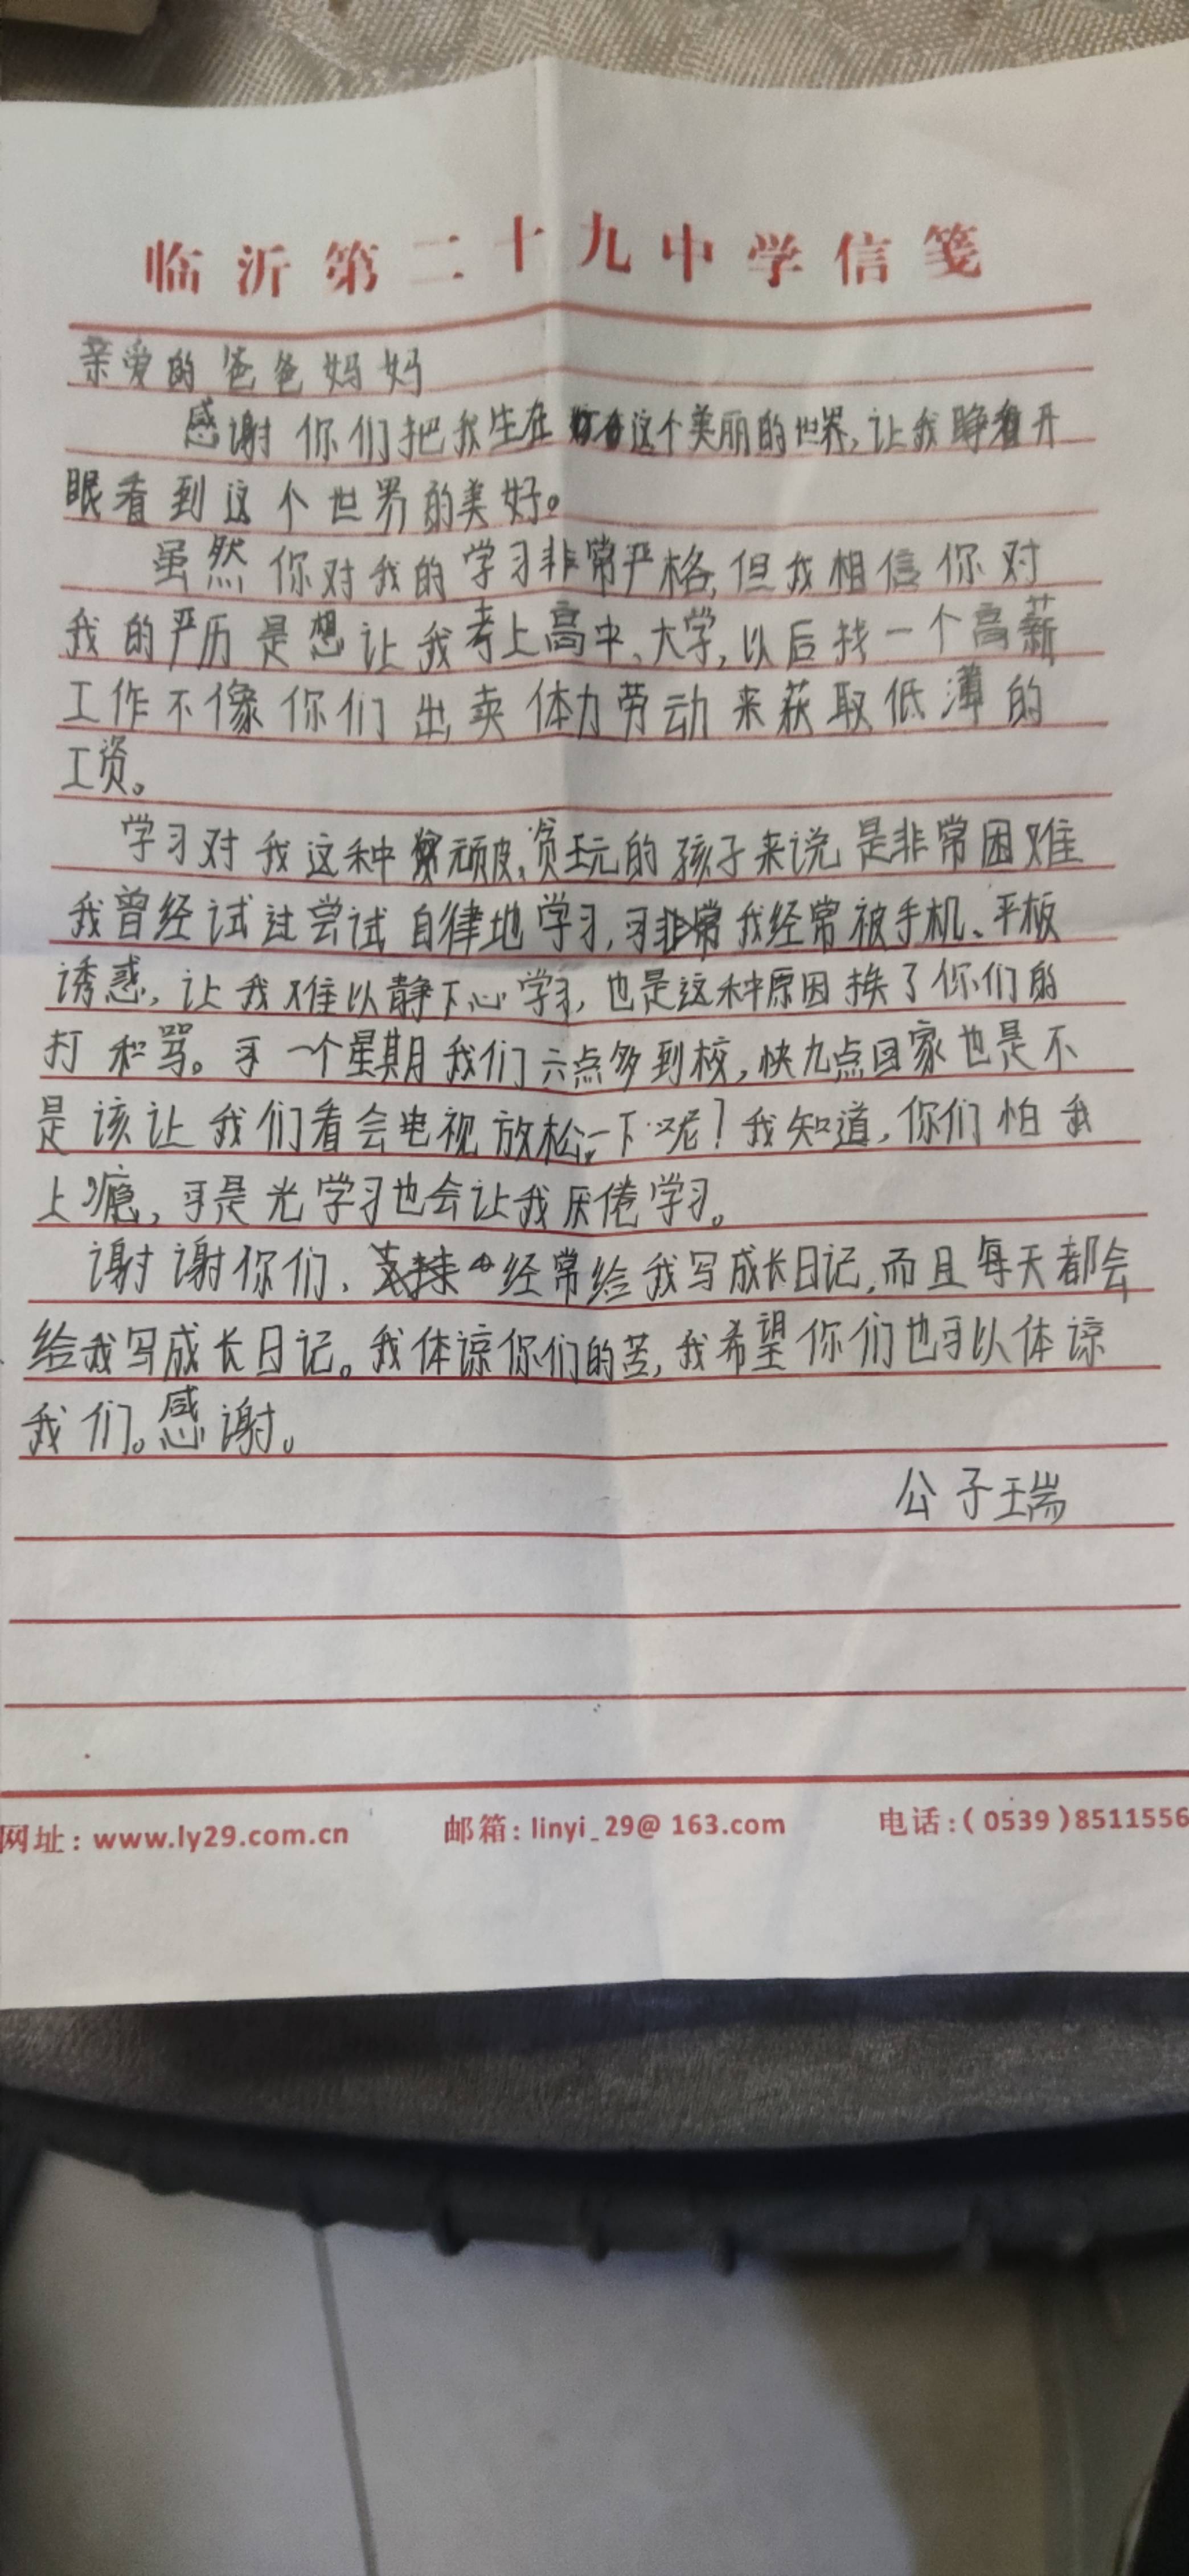 临沂第二十九中学信笺
亲爱的爸爸妈妈
感谢你们把我生在这个美丽的世界,让我睁开
眼看到这个世界的美好。
虽然你对我的学习非常严格,但我相信你对
我的严历是想让我考上高中、大学,以后找一个高薪
工作不像你们出卖体力劳动来获取低薄的
工资。
学习对我这种顽皮,贪玩的孩子来说是非常困难
我曾经试过尝试自律地学习,可我经常被手机、平板
诱惑,让我难以静下心学习,也是这种原因挨了你们的
打和骂。可一个星期我们六点多到校,快九点回家也是不
是该让我们看会电视放松一下呢?我知道,你们怕我
上瘾,可是光学习也会让我厌倦学习。
谢谢你们、经常给我写成长日记,而且每天都会
给我写成长日记。我体谅你们的苦,我希望你们也可以体谅
我们。感谢。
公子瑞
网址:www.ly29.com.cn 邮箱:linyi_29@163.com 电话:(0539)8511556